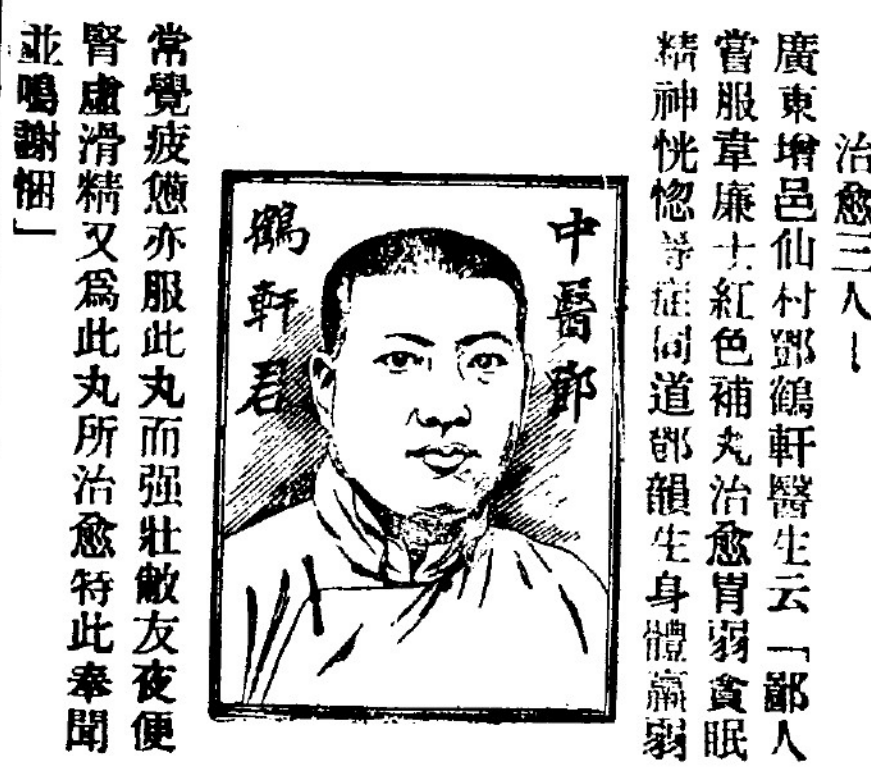 治愈三人
廣東增邑仙村鄧鶴軒醫生云「鄙人
嘗服韋廉士紅色補丸治愈胃弱貪眠
精神恍惚等症同道鄧韻生身體羸弱
中醫鄧
鶴軒君
常覺疲憊亦服此丸而强壯敝友夜便
腎虛滑精又為此丸所治愈特此奉聞
並鳴謝悃」